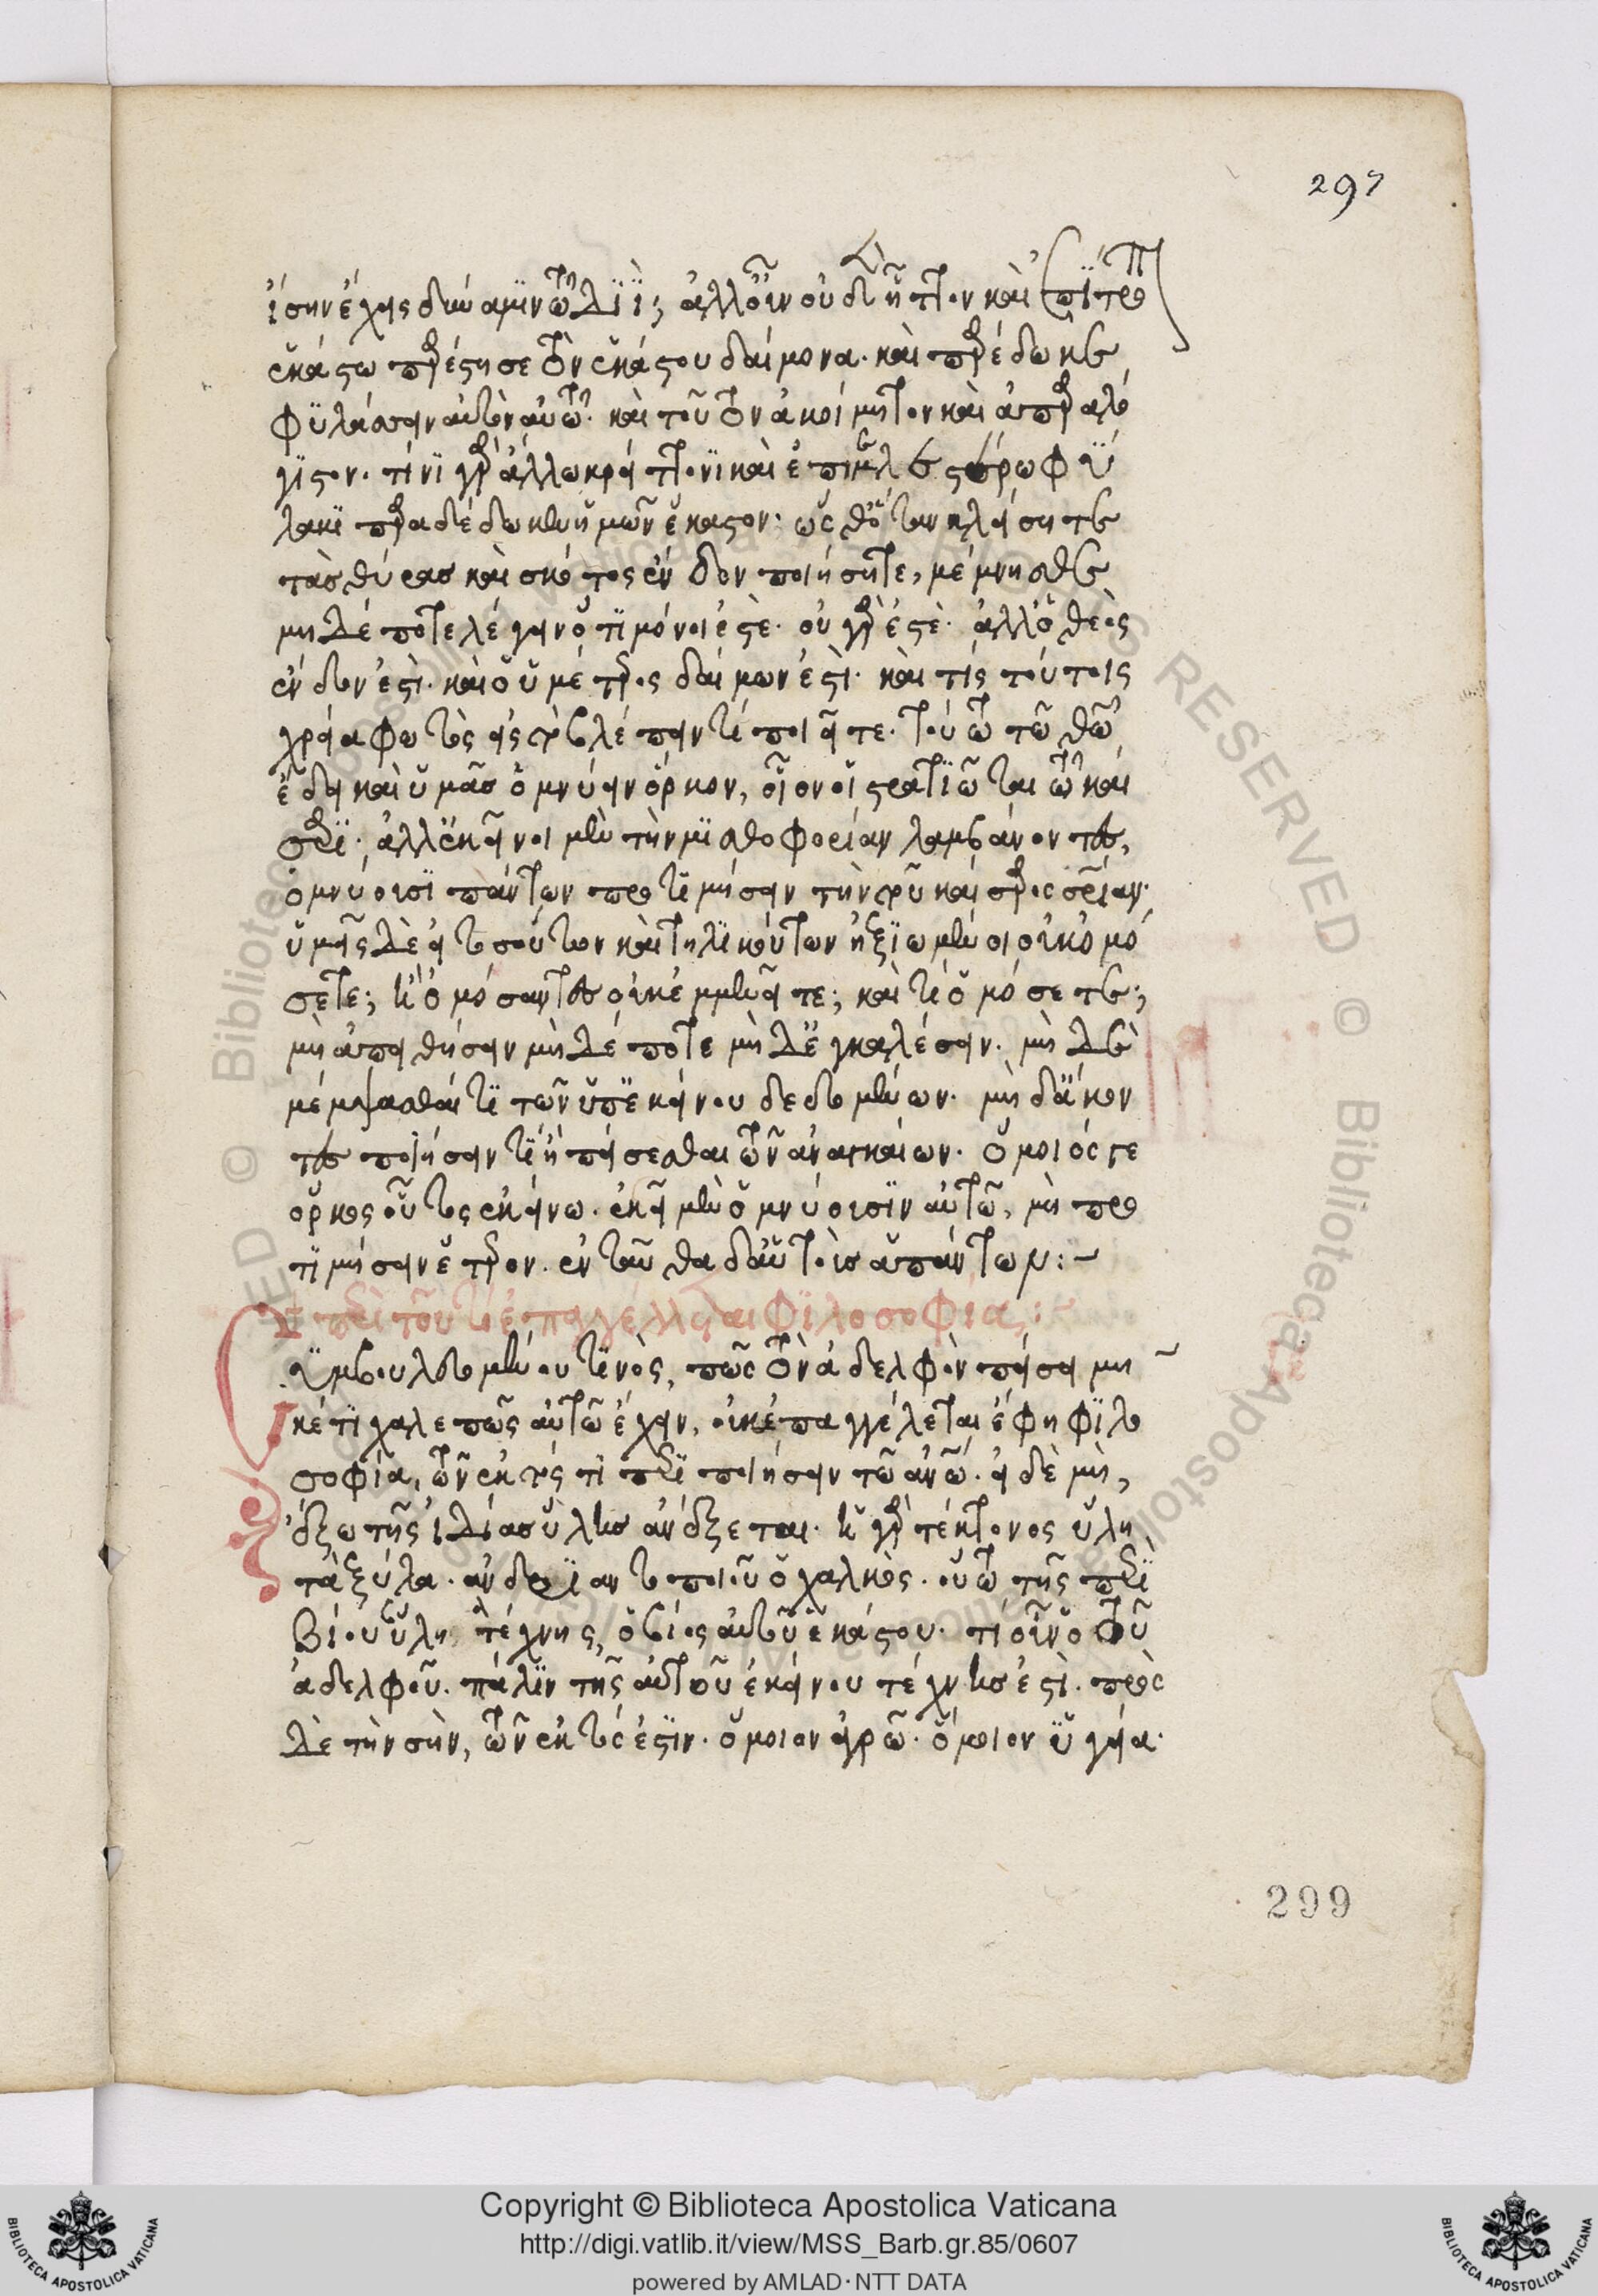 297
ἴσην ἔχεις δύναμιν τῶ Διΐ; ἀλλ' οὖν οὐδὲν ἧττον καὶ ἐπίτροπον
ἑκάστω παρέστησε τὸν ἑκάστου δαίμονα. καὶ παρέδωκε
φυλάσσειν αὐτὸν αὐτῶ. καὶ τοῦτον ἀκοίμητον καὶ ἀπαραλό
γιστον. τίνι γὰρ ἄλλω κρείττονι καὶ ἐπιμελεστέρω φύ
λακι παραδέδωκεν ἡμῶν ἕκαστον· ὥσθ' ὅταν κλείσητε
τὰς θύρας καὶ σκότος ἔνδον ποιήσητε, μέμνησθε
μηδέποτε λέγειν ὅτι μόνοι ἐστέ. οὐ γὰρ ἐστέ. ἀλλ' ὁ θεὸς
ἔνδον ἐστί. καὶ ὁ ὑμέτερος δαίμων ἐστί. καὶ τίς τούτοις
χρεία φωτὸς εἰς τὸ βλέπειν τί ποιεῖτε. τούτω τῶ θεῶ
ἔδει καὶ ὑμᾶς ὀμνύειν ὅρκον, οἷον οἱ στρατιῶται τῶ καί
σαρι. ἀλλ' ἐκεῖνοι μὲν τὴν μισθοφορίαν λαμβάνοντες,
ὀμνύουσι πάντων προτιμήσειν τὴν τοῦ καίσαρος σωτηρίαν.
ὑμεῖς δὲ τοσούτων καὶ τηλικούτων ἠξιωμένοι οὐκ ὀμό
σετε; ἢ ὀμόσαντες οὐκ ἐμμενεῖτε; καὶ τί ὀμόσετε;
μὴ ἀπειθήσειν μηδέποτε μηδ' ἐγκαλέσειν. μηδὲ
μέμψασθαί τι τῶν ὑπ' ἐκείνου δεδομένων. μηδ' ἄκον
τες ποιήσειν τι ἢ πείσεσθαι τῶν ἀναγκαίων. ὅμοιός γε
ὅρκος οὗτος ἐκείνω. ἐκεῖ μὲν ὀμνύουσιν αὐτῶ, μὴ προ
τιμήσειν ἕτερον. ἐνταῦθα δ' αὑτοὺς ἁπάντων:~
περὶ τοῦ τί ἐπαγγέλλεται φιλοσοφία:~
Συμβουλευομένου τινὸς, πῶς τὸν ἀδελφὸν πείσει μη
κέτι χαλεπῶς αὐτῶ ἔχειν, οὐκ ἐπαγγέλεται ἔφη φιλο
σοφία, τῶν ἐκτός τι περιποιήσειν τῶ ἀνω. εἰ δὲ μὴ,
ἔξω τῆς ἰδίας ὕλης ἀνδέξεται. ὡς γὰρ τέκτονος ὕλη
τὰ ξύλα. ἀνδριαντοποιοῦ ὁ χαλκὸς. οὕτω τῆς περὶ
βίου ὕλη τέχνης, ὁ βίος αὐτοῦ ἑκάστου. τί οὖν ὁ τοῦ
ἀδελφοῦ. πάλιν τῆς αὐτοῦ ἐκείνου τέχνης ἐστί. πρὸς
δὲ τὴν σὴν, τῶν ἐκτός ἐστιν. ὅμοιον ἀγρῶ. ὅμοιον ὑγεία.
299
Copyright © Biblioteca Apostolica Vaticana
http://digi.vatlib.it/view/MSS_Barb.gr.85/0607
powered by AMLAD·NTT DATA